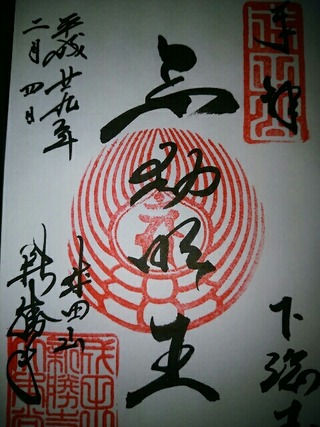 奉拝
下総
不動明王
平成廿九年
二月四日
成田山
新勝寺